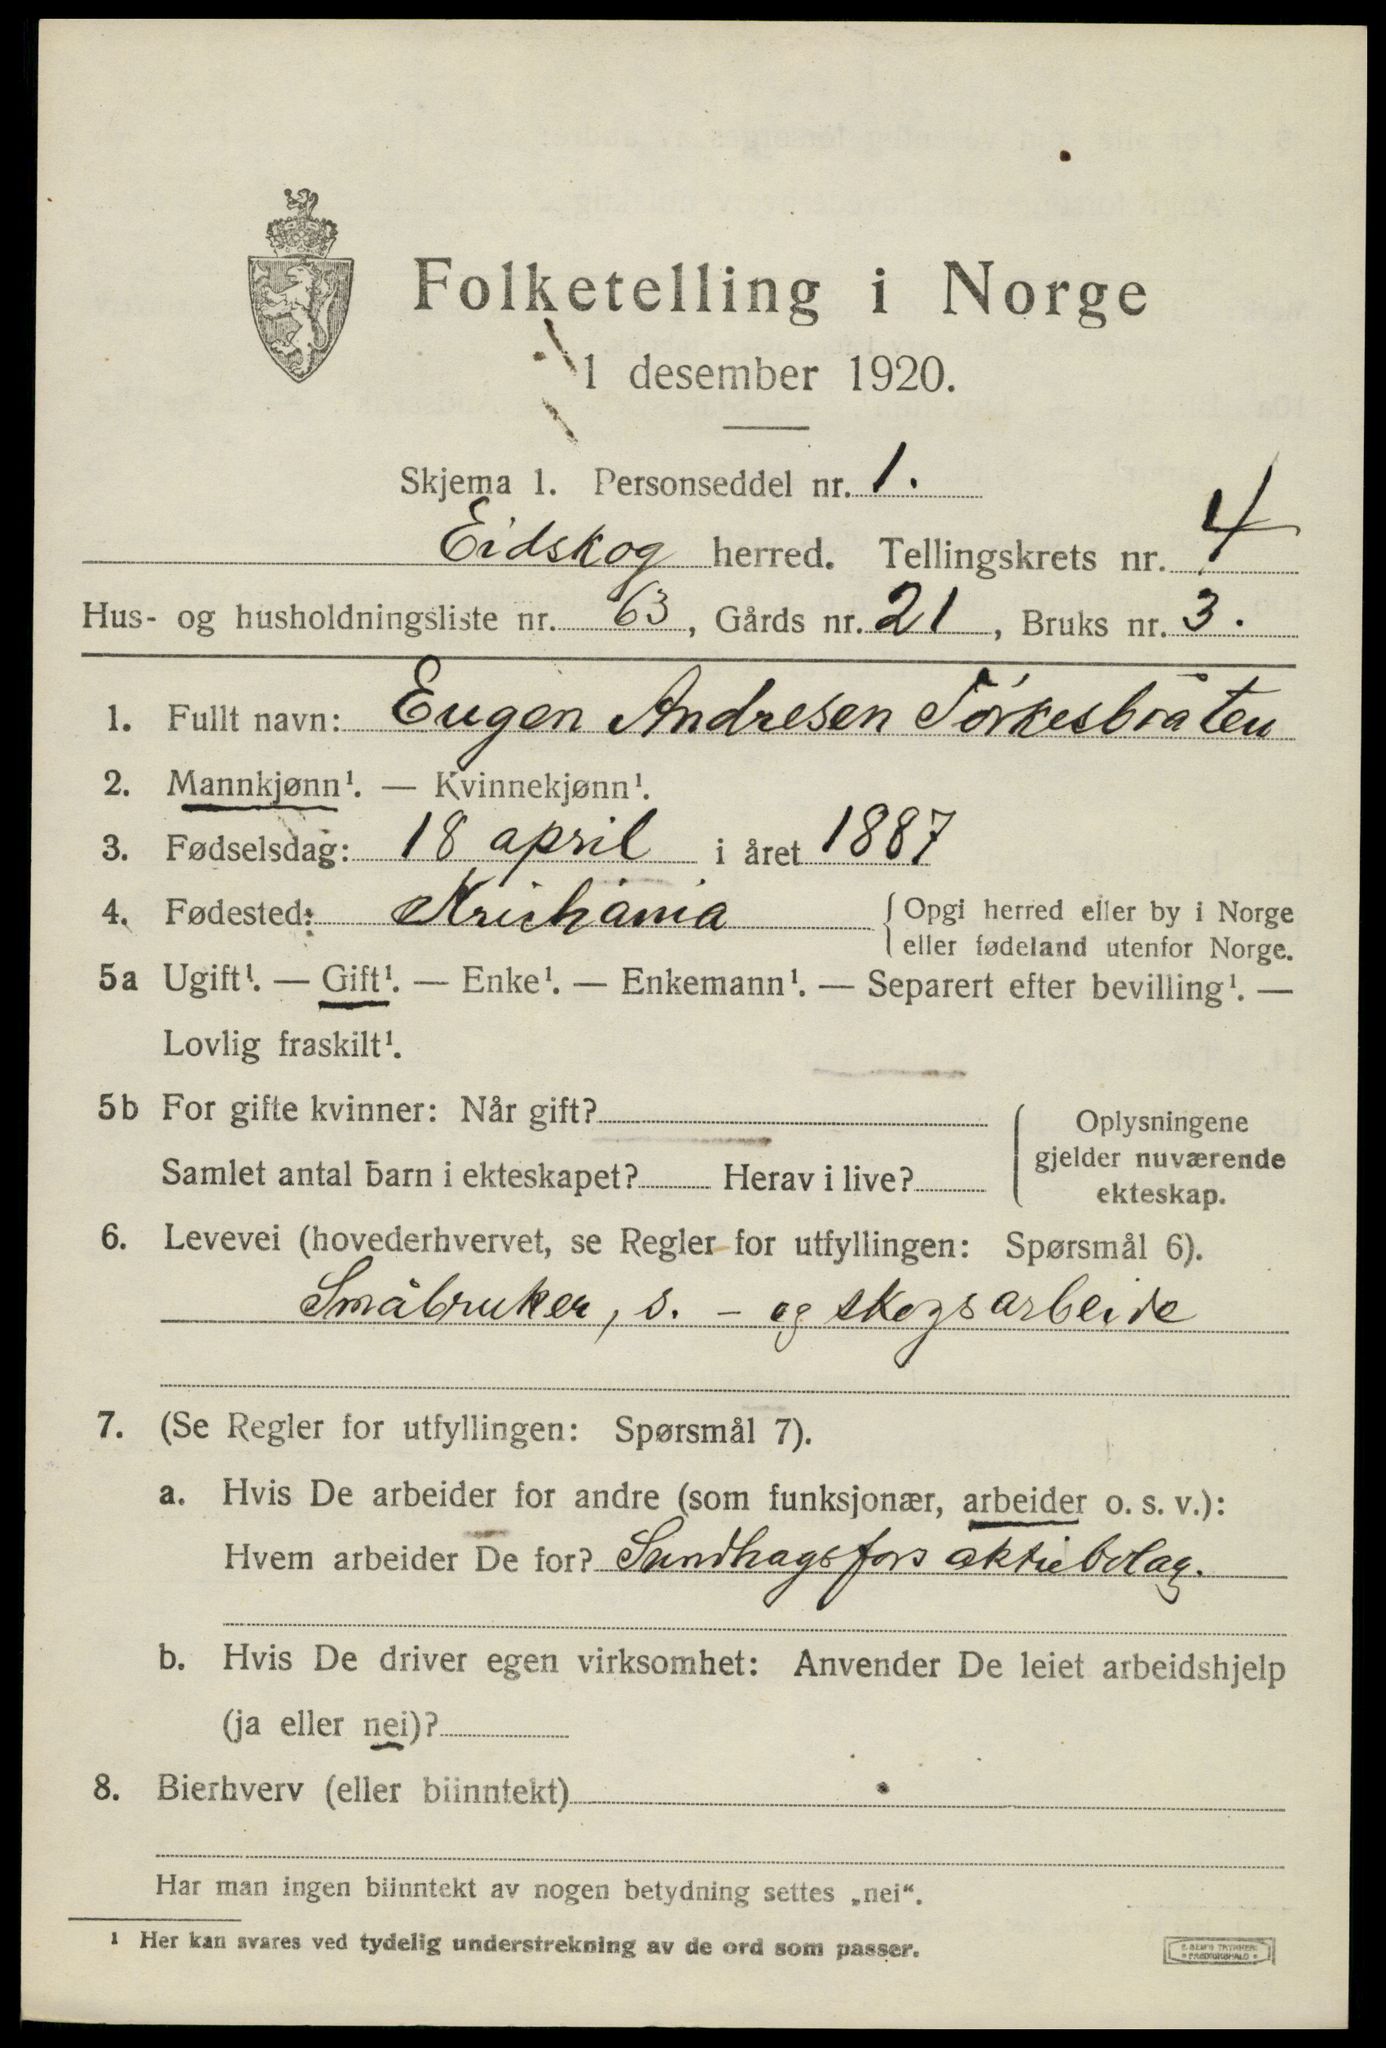 Folketelling i Norge
1 desember 1920.
Skjema 1. Personseddel nr. 1.
Eidskog herred. Tellingskrets nr. 4
Hus- og husholdningsliste nr. 63, Gårds nr. 21, Bruks nr. 3.
1. Fullt navn: Eugen Andresen Tørkesbråten
2. Mannkjønn¹. — Kvinnekjønn¹.
3. Fødselsdag: 18 april i året 1887
4. Fødested: Kristiania { Opgi herred eller by i Norge
eller fødeland utenfor Norge.
5a Ugift¹. — Gift¹. — Enke¹. — Enkemann¹. — Separert efter bevilling¹. —
Lovlig fraskilt¹.
5b For gifte kvinner: Når gift?
Samlet antal barn i ekteskapet? Herav i live?
Oplysningene
gjelder nuværende
ekteskap.
6. Levevei (hovederhvervet, se Regler for utfyllingen: Spørsmål 6).
Småbruker, s. - og skogsarbeide
7. (Se Regler for utfyllingen: Spørsmål 7).
a. Hvis De arbeider for andre (som funksjonær, arbeider o. s. v.):
Hvem arbeider De for? Sundhagsfors aktiebolag.
b. Hvis De driver egen virksomhet: Anvender De leiet arbeidshjelp
(ja eller nei)?
8. Bierhverv (eller biinntekt)
Har man ingen biinntekt av nogen betydning settes „nei“.
¹ Her kan svares ved tydelig understrekning av de ord som passer.
E. SEM'S TRYKKERI
FREDRIKSHALD